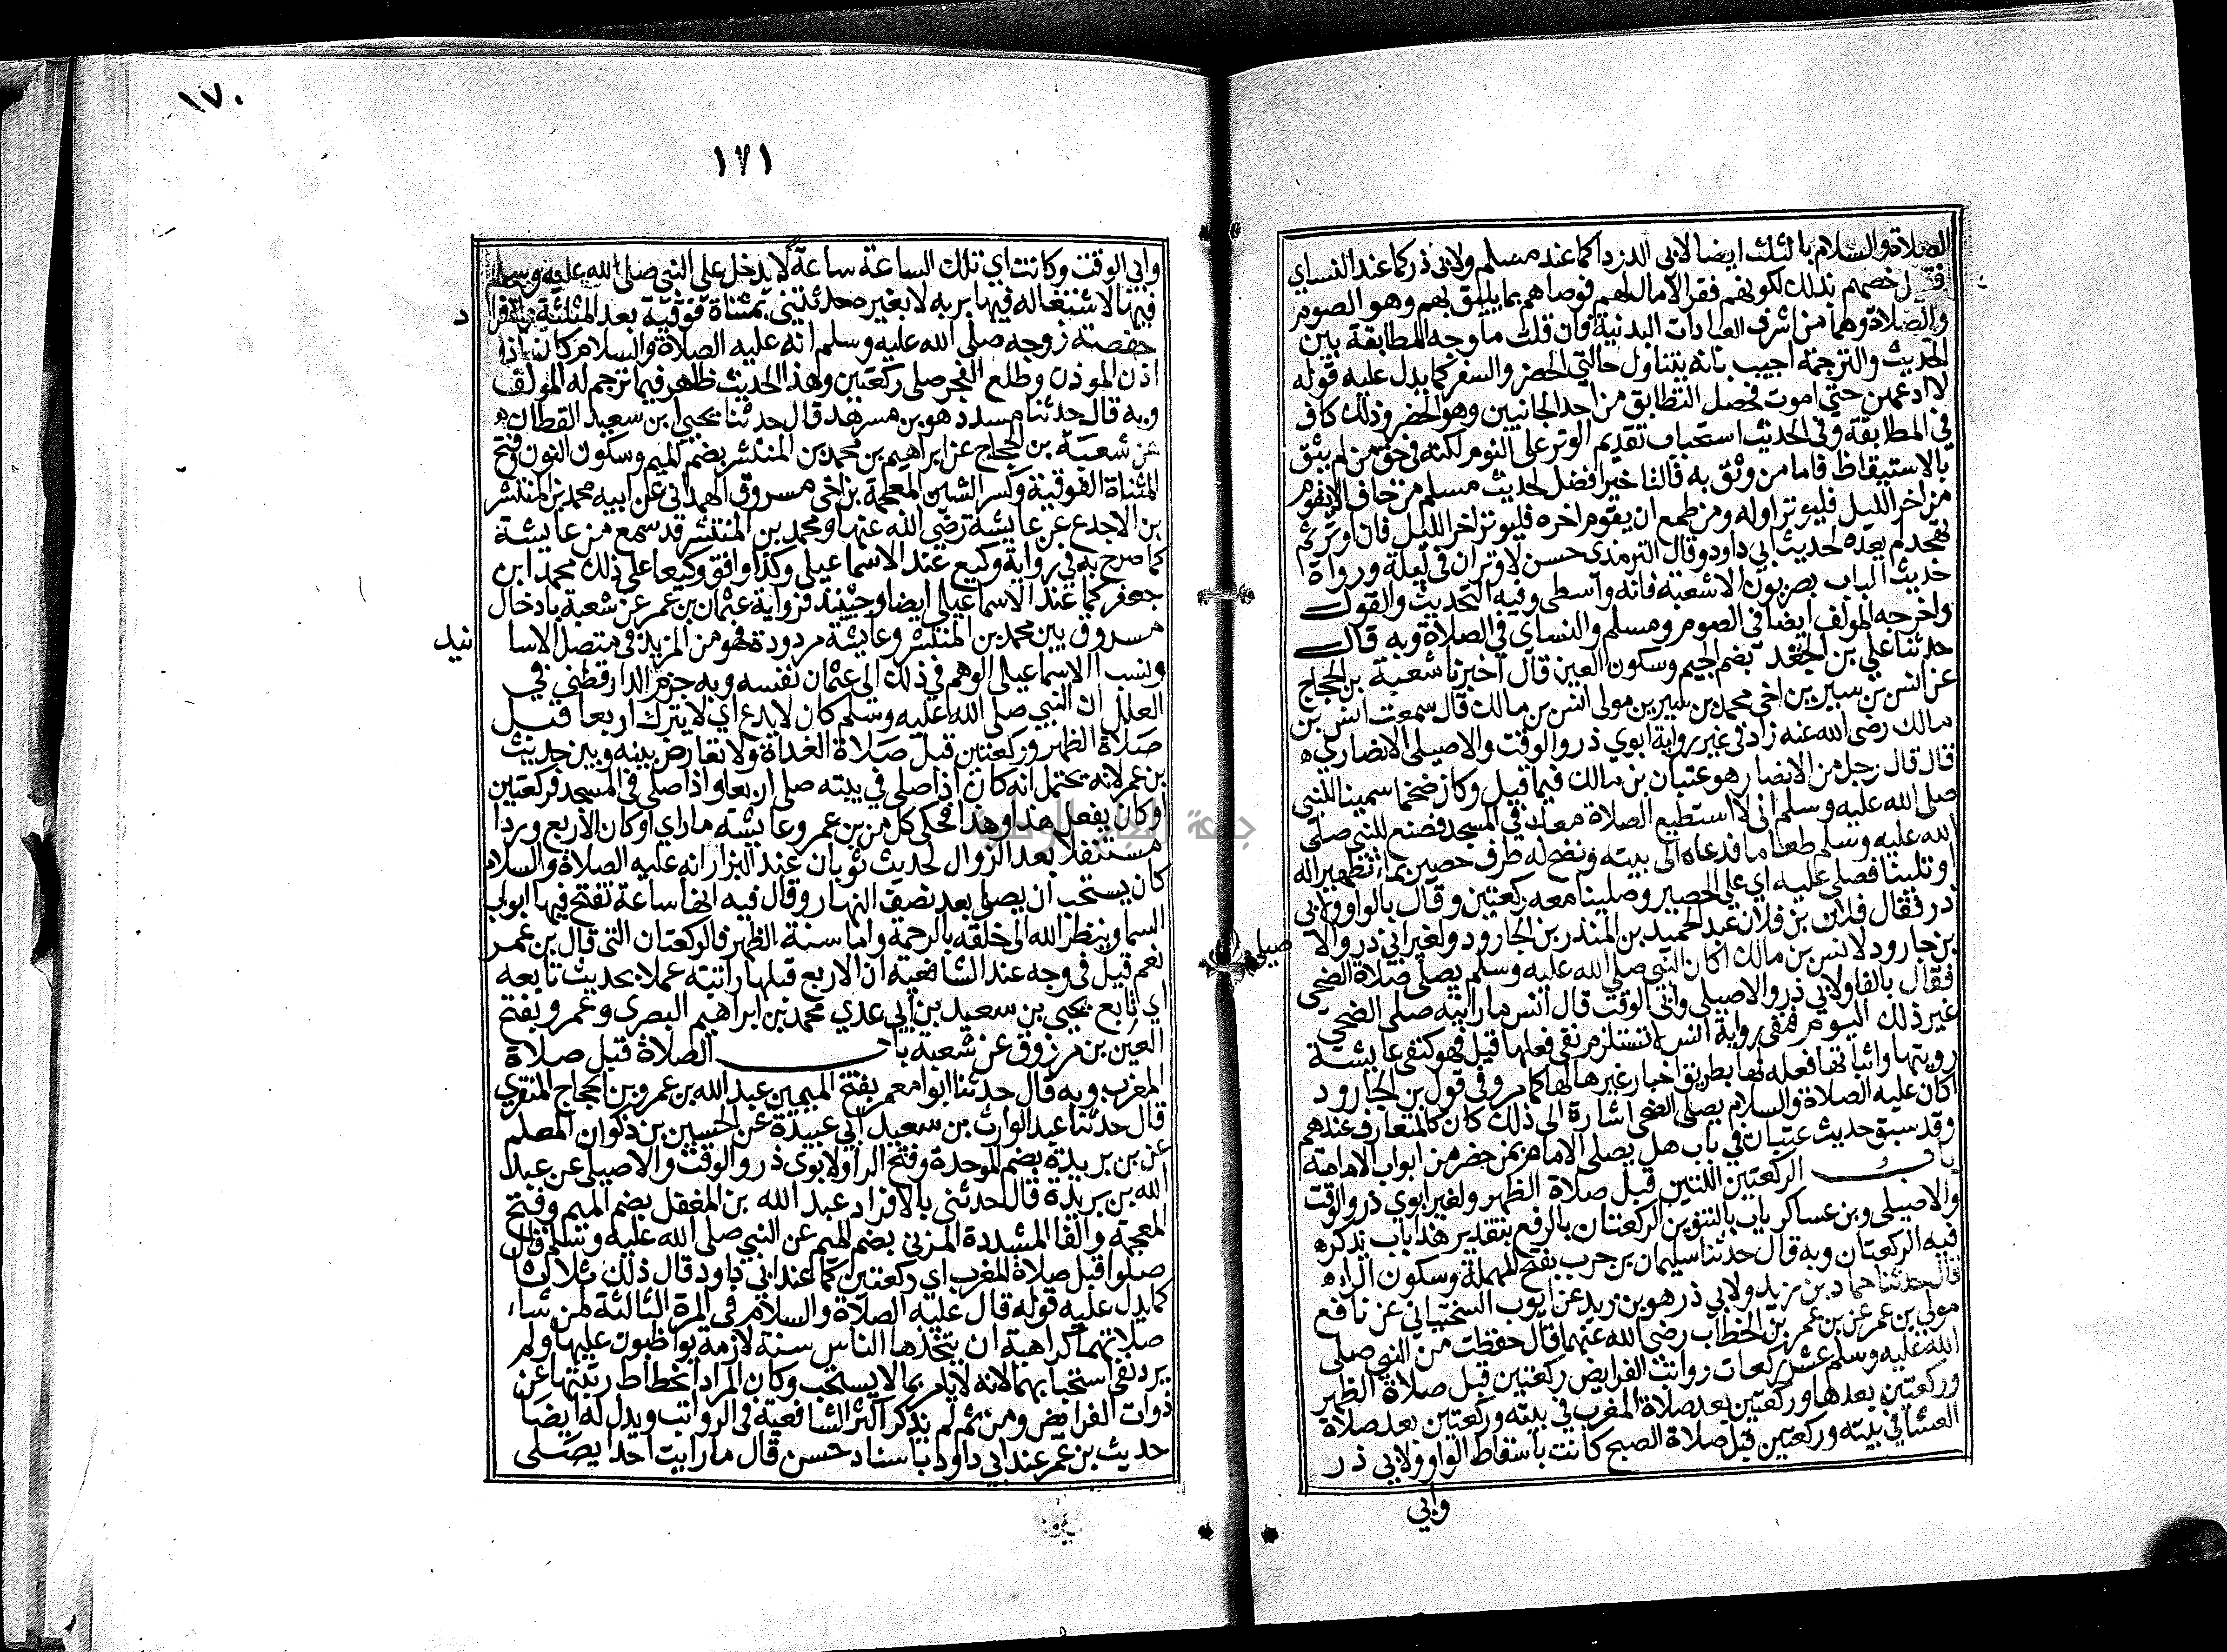 الصلاة والسلام بالثلث ايضا لابي الدردا كما عند مسلم ولابي ذر كما عند النساي
فقيل خصهم بذلك لكونهم فقرا لامال لهم فوصاهم بما يليق بهم وهو الصوم
والصلاة وهما من اشرف العبادات البدنية فان قلت ما وجه المطابقة بين
الحديث والترجمة اجيب بانه يتناول حالتي الحضر والسفر كما يدل عليه قوله
لا ادعهن حتى اموت فحصل التطابق من احد الجانبين وهو الحضر وذلك كاف
في المطابقة وفي الحديث استحباب تقديم الوتر على النوم لكنه في حق من لم يثق
بالاستيقاظ فاما من وثق به فالتاخير افضل لحديث مسلم من خاف الا يقوم
من اخر الليل فليوتر اوله ومن طمع ان يقوم اخره فليوتر اخر الليل فان اوتر ثم
تهجد لم يعده لحديث ابي داود وقال الترمذي حسن لا وتران في ليلة ورواة
حديث الباب بصريون الا شعبة فانه واسطى وفيه التحديث والقول
واخرجه المولف ايضا في الصوم ومسلم والنساي في الصلاة وبه قال
حدثنا علي بن الجعد بضم الجيم وسكون العين قال اخبرنا شعبة بن الحجاج
عن انس بن سيرين اخي محمد بن سيرين مولى انس بن مالك قال سمعت انس بن
مالك رضي الله عنه زاد في غير رواية ابوي ذر والوقت والاصيلي الانصاري
قال قال رجل من الانصار هو عتبان بن مالك فيما قيل وكان ضخما سمينا للنبي
صلى الله عليه وسلم اني لا استطيع الصلاة معك في المسجد فصنع للنبي صلى
الله عليه وسلم طعاما فدعاه الى بيته ونضح له طرف حصير بماء تطهيرا له
او تليينا فصلى عليه اي على الحصير وصلينا معه ركعتين وقال بالواو ولابي
ذر فقال فلان بن فلان عبد الحميد بن المنذر بن الجارود ولغير ابي ذر والا صيلي
بن جارود لانس بن مالك اكان النبي صلى الله عليه وسلم يصلى صلاة الضحى
فقال بالفا ولابي ذر والاصيلي وابي الوقت قال انس ما رايته صلى الضحى
غير ذلك اليوم فنفي رواية انس لا تستلزم نفي فعلها قيل فهو كنفي عايشة
رويتها واثباتها فعله لها بطريق اخبار غيرها لها كما مر وفي قول بن الجارود
اكان عليه الصلاة والسلام يصلى الضحى اشارة الى ذلك كان كالمتعارف عندهم
وقد سبق حديث عتبان في باب هل يصلى الامام بمن حضر من ابواب الامامة
باب الركعتين اللتين قبل صلاة الظهر ولغير ابوي ذر والوقت
والاصيلي وبن عساكر باب بالتنوين الركعتان بالرفع بتقدير هذا باب يذكر
فيه الركعتان وبه قال حدثنا سليمان بن حرب بفتح المهملة وسكون الراء
قال حدثنا حماد بن زيد ولابي ذر هو بن زيد عن ايوب السختياني عن نافع
مولى بن عمر عن بن عمر بن الخطاب رضي الله عنهما قال حفظت من النبي صلى
الله عليه وسلم عشر ركعات رواتب الفرايض ركعتين قبل صلاة الظهر
وركعتين بعدها وركعتين بعد صلاة المغرب في بيته وركعتين بعد صلاة
العشا في بيته وركعتين قبل صلاة الصبح كانت باسقاط الواو ولابي ذر
وابي
١٧٠
١٧١
وابي الوقت وكانت اي تلك الساعة ساعة لا يدخل على النبي صلى الله عليه وسلم
فيها لاشتغاله فيها بربه لا بغيره حدثتني بمثناة فوقية بعد المثلثة بالافرا د
حفصة زوجه صلى الله عليه وسلم انه عليه الصلاة والسلام كان اذا
اذن الموذن وطلع الفجر صلى ركعتين وهذا الحديث ظاهر فيما ترجم له المولف
وبه قال حدثنا مسدد هو بن مسرهد قال حدثنا يحيى بن سعيد القطان
عن شعبة بن الحجاج عن ابراهيم بن محمد بن المنتشر بضم الميم وسكون النون وفتح
المثناة الفوقية وكسر الشين المعجمة بن اخي مسروق الهمداني عن ابيه محمد بن المنتشر
بن الاجدع عن عايشة رضي الله عنها ومحمد بن المنتشر قد سمع من عايشة
كما صرح به في رواية وكيع عند الاسماعيلي وكذا وافق وكيعا على ذلك محمد ابن
جعفر كما عند الاسماعيلي ايضا وحينئذ فرواية عثمان بن عمر عن شعبة بادخال
مسروق بين محمد بن المنتشر وعايشة مردودة فهو من المزيد في متصل الاسا نيد
ونسب الاسماعيلي الوهم في ذلك الى عثمان نفسه وبه جزم الدارقطني في
العلل ان النبي صلى الله عليه وسلم كان لا يدع اي لا يترك اربعا قبل
صلاة الظهر وركعتين قبل صلاة الغداة ولا تعارض بينه وبين حديث
بن عمر لانه يحتمل انه كان اذا صلى في بيته صلى اربعا واذا صلى في المسجد فركعتين
او كان يفعل هذا وهذا فحكى كل من بن عمر وعايشة ما راي او كان الاربع وردا
مستقلا بعد الزوال لحديث ثوبان عند البزار انه عليه الصلاة والسلام
كان يستحب ان يصلي بعد نصف النهار وقال فيه انها ساعة تفتح فيها ابواب
السما وينظر الله الى خلقه بالرحمة واما سنة الظهر فالركعتان التي قال بن عمر
نعم قيل في وجه عند الشافعية ان الاربع قبلها راتبة عملا بحديث تابعه
اي تابع يحيى بن سعيد بن ابي عدي محمد بن ابراهيم البصري وعمرو بفتح
العين بن مرزوق عن شعبة باب الصلاة قبل صلاة
المغرب وبه قال حدثنا ابو معمر بفتح الميمين عبد الله بن عمرو بن الحجاج المنقري
قال حدثنا عبد الوارث بن سعيد ابي عبيدة عن الحسين بن ذكوان المعلم
عن بن بريدة بضم الموحدة وفتح الرا ولابوي ذر والوقت والاصيلي عن عبد
الله بن بريدة قال حدثني بالافراد عبد الله بن المغفل بضم الميم وفتح
المعجمة والفا المشددة المزني بضم الميم عن النبي صلى الله عليه وسلم قال
صلوا قبل صلاة المغرب اي ركعتين كما عند ابي داود قال ذلك ثلاثا
كما يدل عليه قوله قال عليه الصلاة والسلام في المرة الثالثة لمن شاء
صلاتهما كراهية ان يتخذها الناس سنة لازمة يواظبون عليها ولم
يرد نفي استحبابهما لانه لا يامر بما لا يستحب وكان المراد انحطاط رتبتها عن
ذوات الفرايض ومن ثم لم يذكر اكثر الشافعية في الرواتب ويدل له ايضا
حديث بن عمر عند ابي داود باسناد حسن قال ما رايت احدا يصلى